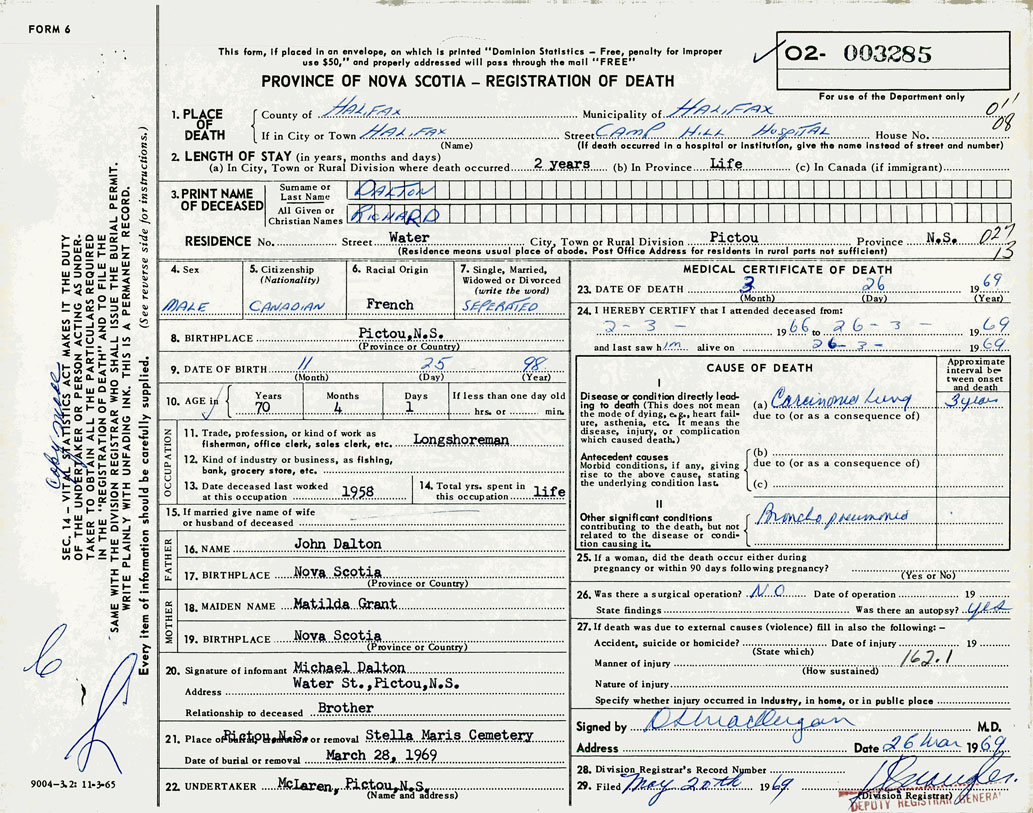 FORM 6
This form, if placed in an envelope, on which is printed "Dominion Statistics – Free, penalty for improper
use $50," and properly addressed will pass through the mail "FREE"
PROVINCE OF NOVA SCOTIA – REGISTRATION OF DEATH
02- 003285
For use of the Department only
011
08
1. PLACE OF DEATH
County of HALIFAX Municipality of HALIFAX
If in City or Town HALIFAX Street CAMP HILL HOSPITAL House No.
(Name) (If death occurred in a hospital or institution, give the name instead of street and number)
2. LENGTH OF STAY (in years, months and days)
(a) In City, Town or Rural Division where death occurred 2 years (b) In Province Life (c) In Canada (if immigrant)
3. PRINT NAME OF DECEASED
Surname or Last Name DALTON
All Given or Christian Names RICHARD
RESIDENCE No. Street Water City, Town or Rural Division Pictou Province N.S. 027
13
(Residence means usual place of abode. Post Office Address for residents in rural parts not sufficient)
4. Sex
MALE
5. Citizenship
(Nationality)
CANADIAN
6. Racial Origin
French
7. Single, Married,
Widowed or Divorced
(write the word)
SEPERATED
8. BIRTHPLACE Pictou,N.S.
(Province or Country)
9. DATE OF BIRTH 11 25 98
(Month) (Day) (Year)
10. AGE in
Years Months Days If less than one day old
70 4 1 hrs. or min.
OCCUPATION
11. Trade, profession, or kind of work as
fisherman, office clerk, sales clerk, etc. Longshoreman
12. Kind of industry or business, as fishing,
bank, grocery store, etc.
13. Date deceased last worked
at this occupation 1958
14. Total yrs. spent in
this occupation life
15. If married give name of wife
or husband of deceased
FATHER
16. NAME John Dalton
17. BIRTHPLACE Nova Scotia
(Province or Country)
MOTHER
18. MAIDEN NAME Matilda Grant
19. BIRTHPLACE Nova Scotia
(Province or Country)
20. Signature of informant Michael Dalton
Address Water St.,Pictou,N.S.
Relationship to deceased Brother
21. Place of burial, cremation or removal Pictou,N.S. Stella Maris Cemetery
Date of burial or removal March 28, 1969
22. UNDERTAKER McLaren, Pictou,N.S.
(Name and address)
MEDICAL CERTIFICATE OF DEATH
23. DATE OF DEATH 3 26 1969
(Month) (Day) (Year)
24. I HEREBY CERTIFY that I attended deceased from:
2-3- 1966 to 26-3- 1969
and last saw him alive on 26-3- 1969
CAUSE OF DEATH
Approximate
interval be-
tween onset
and death
I
Disease or condition directly lead-
ing to death (This does not mean
the mode of dying, e.g., heart fail-
ure, asthenia, etc. It means the
disease, injury, or complication
which caused death.)
(a) Carcinoma Lung 3 years
due to (or as a consequence of)
Antecedent causes
Morbid conditions, if any, giving
rise to the above cause, stating
the underlying condition last.
(b)
due to (or as a consequence of)
(c)
II
Other significant conditions
contributing to the death, but not
related to the disease or condi-
tion causing it.
Broncho pneumonia
25. If a woman, did the death occur either during
pregnancy or within 90 days following pregnancy?
(Yes or No)
26. Was there a surgical operation? NO Date of operation 19
State findings Was there an autopsy? Yes
27. If death was due to external causes (violence) fill in also the following: –
Accident, suicide or homicide? Date of injury 19
(State which)
Manner of injury 162.1
(How sustained)
Nature of injury
Specify whether injury occurred in industry, in home, or in public place
Signed by M.D.
Address Date 26 Mar 1969
28. Division Registrar's Record Number
29. Filed May 20th 1969
(Division Registrar)
DEPUTY REGISTRAR GENERAL
SEC. 14 – VITAL STATISTICS ACT MAKES IT THE DUTY
OF THE UNDERTAKER OR PERSON ACTING AS UNDER-
TAKER TO OBTAIN ALL THE PARTICULARS REQUIRED
IN THE "REGISTRATION OF DEATH" AND TO FILE THE
SAME WITH THE DIVISION REGISTRAR WHO SHALL ISSUE THE BURIAL PERMIT.
WRITE PLAINLY WITH UNFADING INK. THIS IS A PERMANENT RECORD.
Every item of information should be carefully supplied. (See reverse side for instructions.)
9004-3.2: 11-3-65